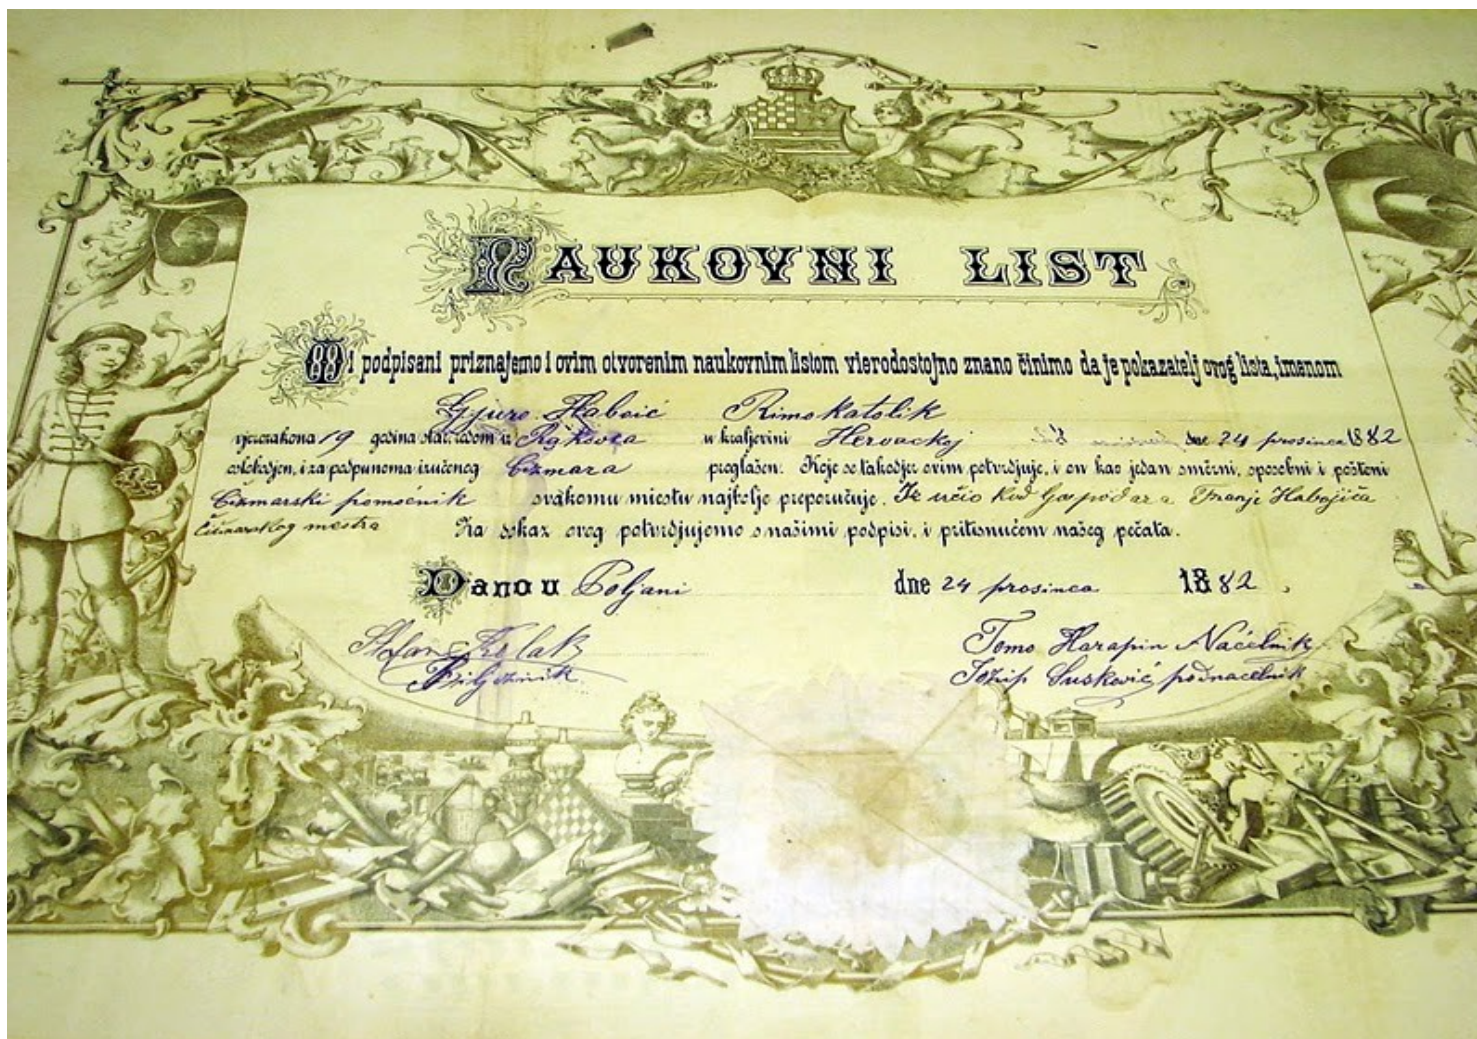 NAUKOVNI LIST
Mi podpisani priznajemo i ovim otvorenim naukovnim listom vierodostojno znano činimo da je pokazatelj ovog lista, imenom
Gjuro Haboić Rimokatolik
vjerozakona 19 godina star, rodom iz u kraljevini Hervackoj dne 24 prosinca 1882
oslobodjen, i za podpunoma izučenog Čizmara proglašen. Koje se takodjer ovim potvrdjuje, i on kao jedan směrni, sposobni i pošteni
Čizmarski pomoćnik svakomu miestu najbolje preporučuje. Iz učio kod Gospodara Franje Habajiča
Čizmarskog mestra Za dokaz ovog potvrdjujemo s našimi podpisi, i pritisnućem našeg pečata.
Dano u Poljani dne 24 prosinca 1882.
Tomo Harapin Načelnik
Kolak Josip Suskević podnacelnik
Biljeznik